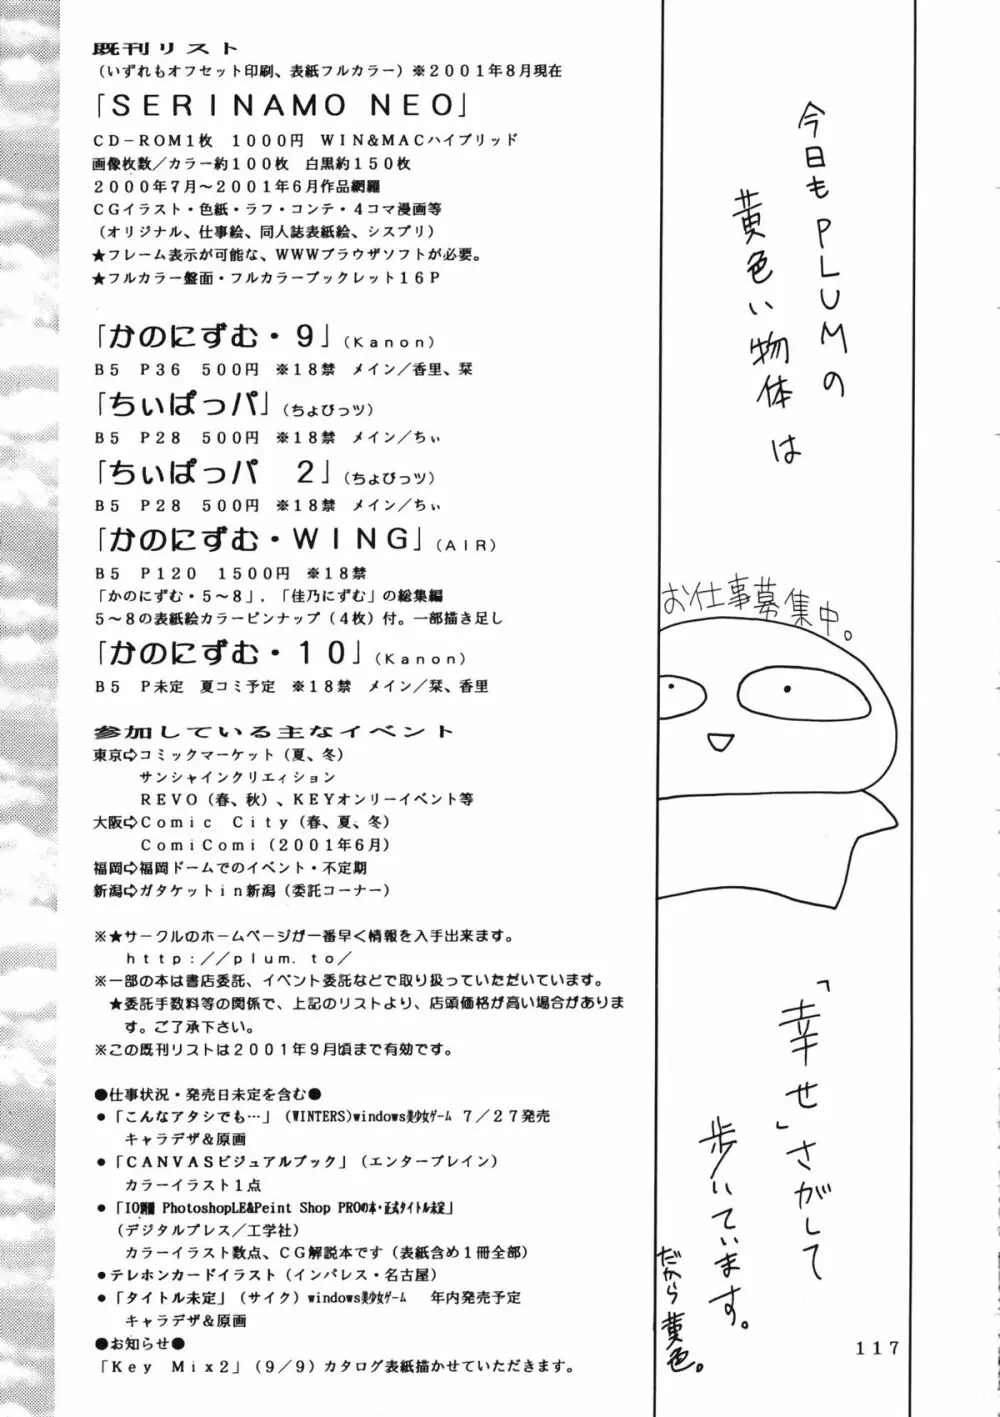 既刊リスト
（いずれもオフセット印刷、表紙フルカラー）※２００１年８月現在
「ＳＥＲＩＮＡＭＯ ＮＥＯ」
ＣＤ－ＲＯＭ１枚　１０００円　ＷＩＮ＆ＭＡＣハイブリッド
画像枚数／カラー約１００枚　白黒約１５０枚
２０００年７月～２００１年６月作品網羅
ＣＧイラスト・色紙・ラフ・コンテ・４コマ漫画等
（オリジナル、仕事絵、同人誌表紙絵、シスプリ）
★フレーム表示が可能な、ＷＷＷブラウザソフトが必要。
★フルカラー盤面・フルカラーブックレット１６Ｐ
「かのにずむ・９」（Ｋａｎｏｎ）
Ｂ５　Ｐ３６　５００円　※１８禁　メイン／香里、栞
「ちぃぱっパ」（ちょびっツ）
Ｂ５　Ｐ２８　５００円　※１８禁　メイン／ちぃ
「ちぃぱっパ　２」（ちょびっツ）
Ｂ５　Ｐ２８　５００円　※１８禁　メイン／ちぃ
「かのにずむ・ＷＩＮＧ」（ＡＩＲ）
Ｂ５　Ｐ１２０　１５００円　※１８禁
「かのにずむ・５～８」，「佳乃にずむ」の総集編
５～８の表紙絵カラーピンナップ（４枚）付。一部描き足し
「かのにずむ・１０」（Ｋａｎｏｎ）
Ｂ５　Ｐ未定　夏コミ予定　※１８禁　メイン／栞、香里
参加している主なイベント
東京⇨コミックマーケット（夏、冬）
サンシャインクリエィション
ＲＥＶＯ（春、秋）、ＫＥＹオンリーイベント等
大阪⇨Ｃｏｍｉｃ　Ｃｉｔｙ（春、夏、冬）
ＣｏｍｉＣｏｍｉ（２００１年６月）
福岡⇨福岡ドームでのイベント・不定期
新潟⇨ガタケットｉｎ新潟（委託コーナー）
※★サークルのホームページが一番早く情報を入手出来ます。
ｈｔｔｐ：／／ｐｌｕｍ．ｔｏ／
※一部の本は書店委託、イベント委託などで取り扱っていただいています。
★委託手数料等の関係で、上記のリストより、店頭価格が高い場合がありま
す。ご了承下さい。
※この既刊リストは２００１年９月頃まで有効です。
●仕事状況・発売日未定を含む●
●「こんなアタシでも…」（WINTERS)windows美少女ｹﾞｰﾑ　７／２７発売
キャラデザ＆原画
●「ＣＡＮＶＡＳビジュアルブック」（エンターブレイン）
カラーイラスト１点
PhotoshopLE&Peint Shop PROの本・正式タイトル未定」
（デジタルプレス／工学社）
カラーイラスト数点、ＣＧ解説本です（表紙含め１冊全部）
●テレホンカードイラスト（インパレス・名古屋）
●「タイトル未定」（サイク）windows美少女ｹﾞｰﾑ　年内発売予定
キャラデザ＆原画
●お知らせ●
「Ｋｅｙ　Ｍｉｘ２」（９／９）カタログ表紙描かせていただきます。
今日もPLUMの
黄色い物体は
お仕事募集中。
「幸せ」さがして
歩いています。
だから黄色。
１１７